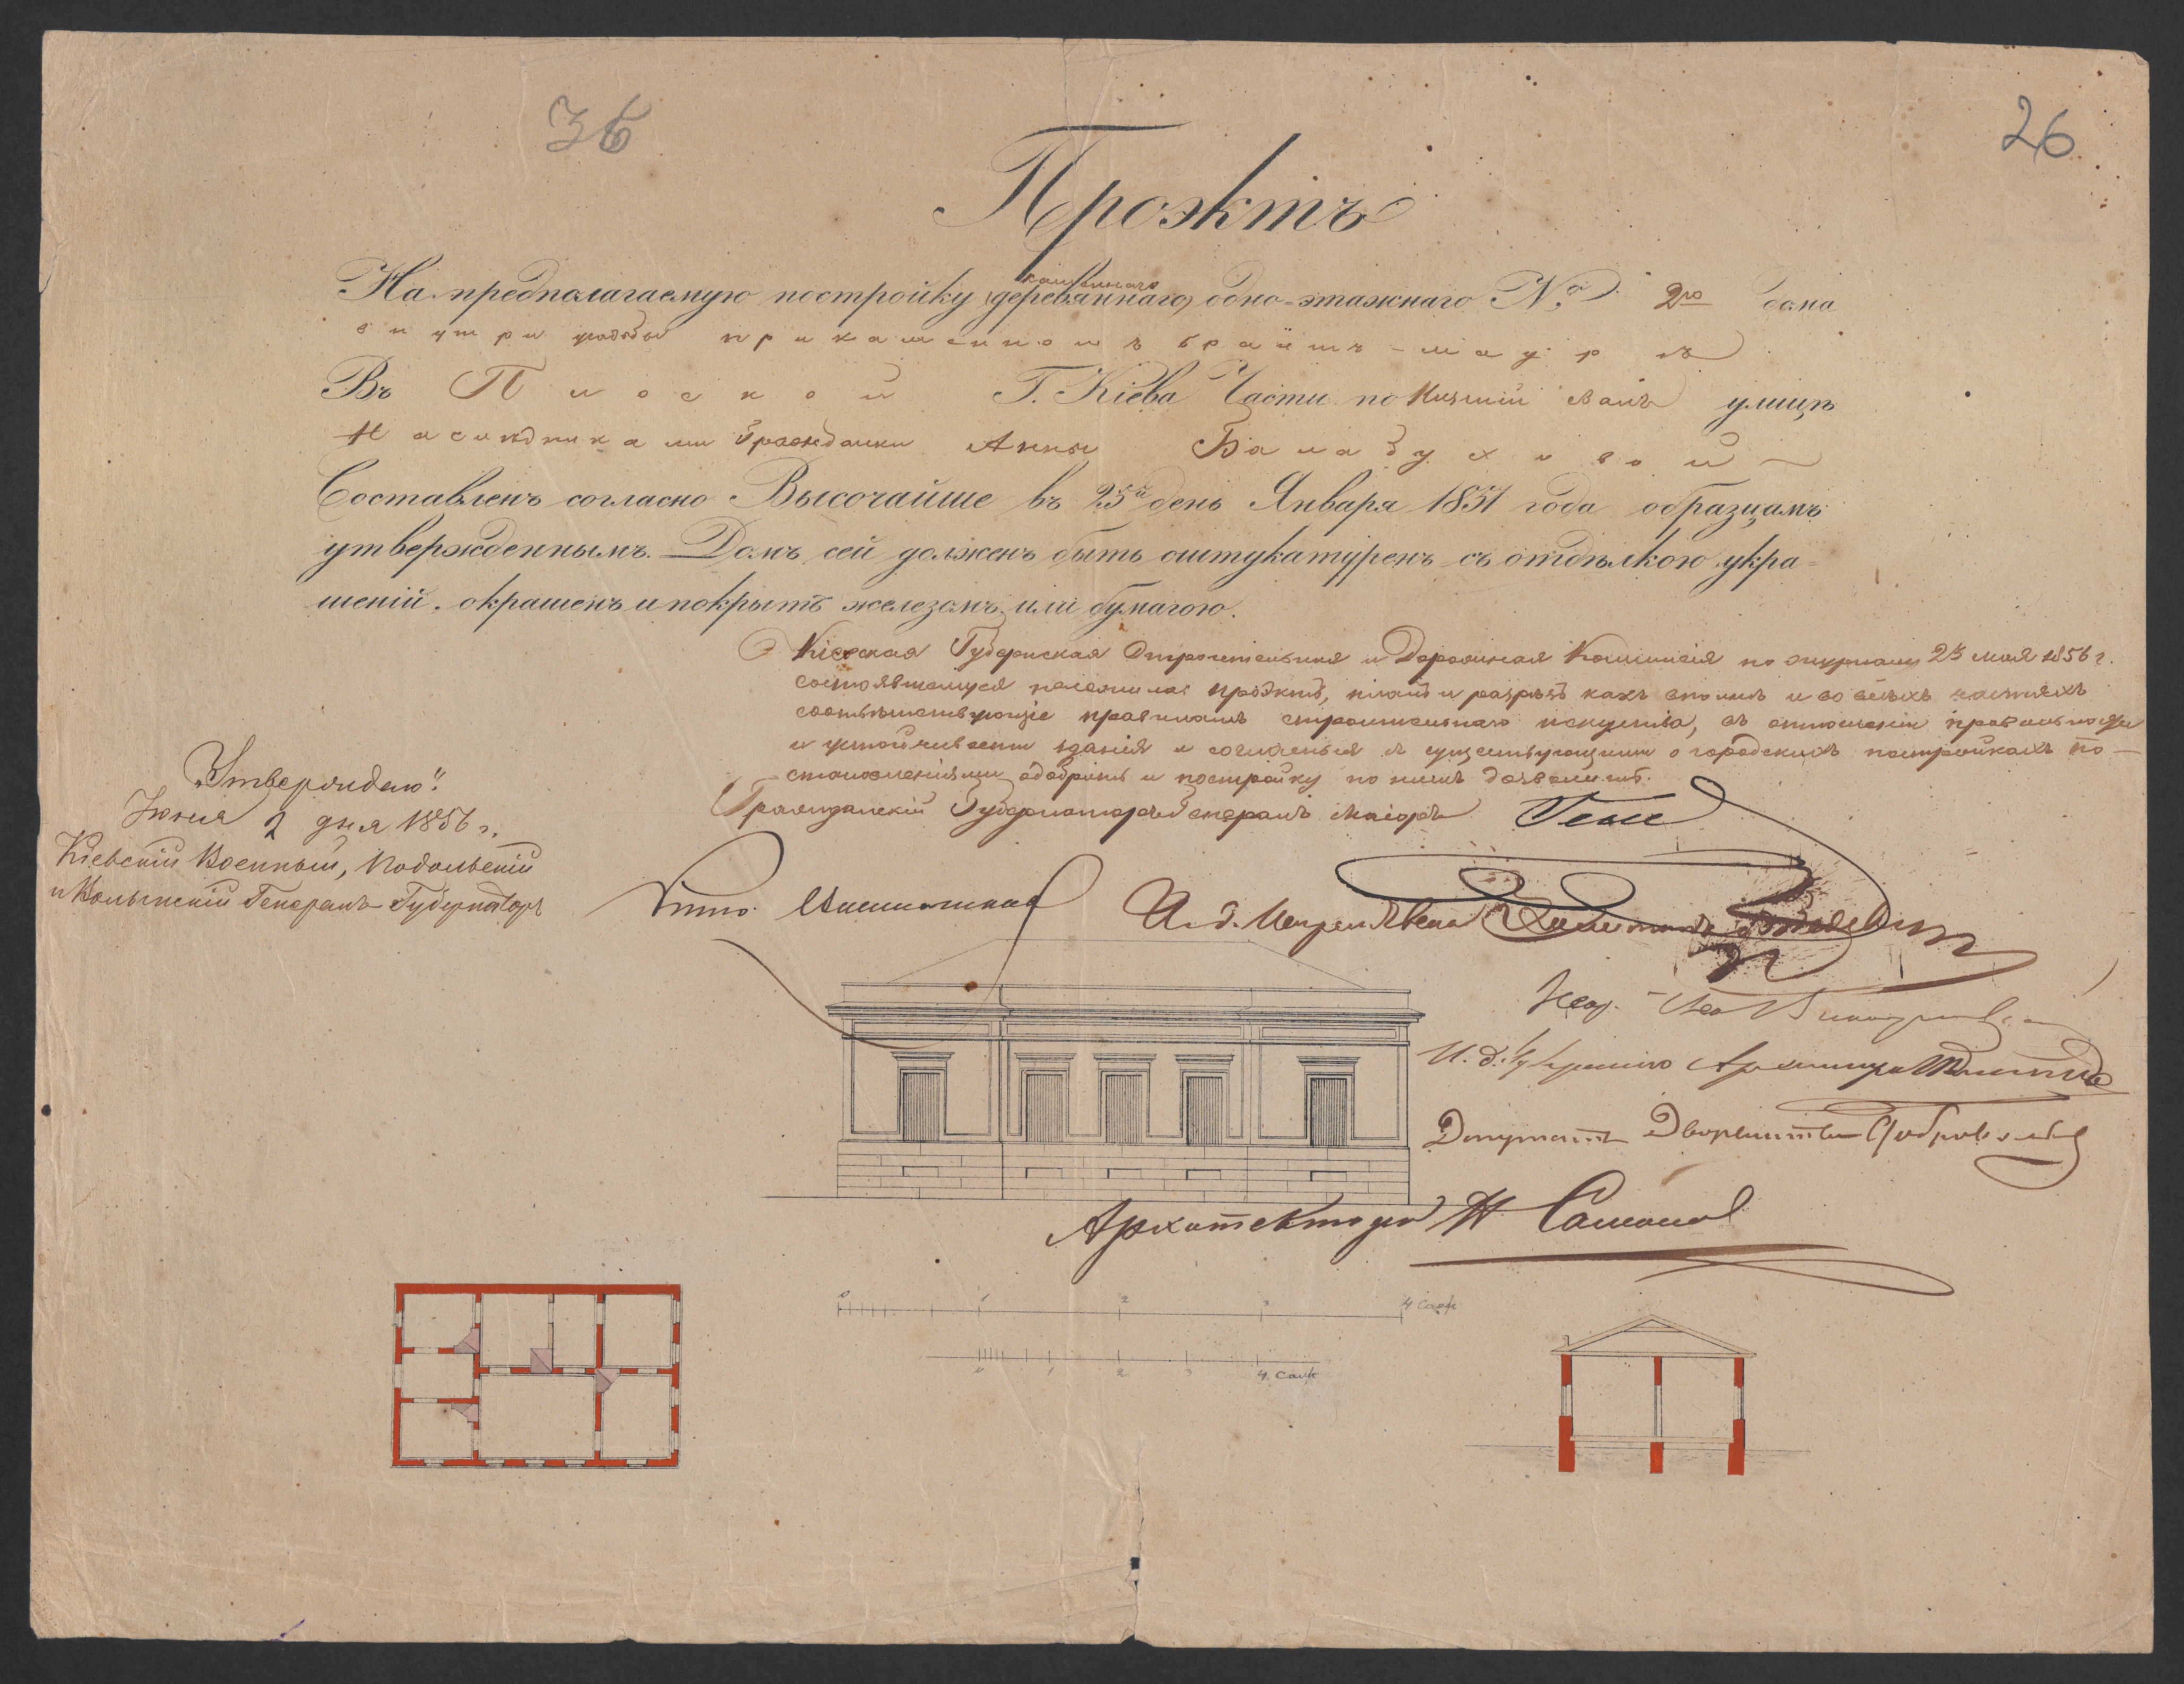 36
26
Проэктъ
каменнаго
На предполагаемую постройку (деревяннаго) одно-этажнаго № 2го дома
внутри усадьбы при каменномъ брантъ-мауръ
Въ Плоской Г. Кіева Части по Нижній Валъ улицѣ
Наслѣдниками Гражданки Анны Балабухиной
Составленъ согласно Высочайше въ 25й день Января 1851 года образцамъ
утвержденнымъ. Домъ сей долженъ быть оштукатуренъ съ отдѣлкою укра-
шеній, окрашенъ и покрытъ железомъ или бумагою.
Кіевская Губернская Строительная и Дорожная Коммисія по журналу 23 мая 1856 г.
состоявшемуся проэктъ, планъ и разрѣзъ какъ вполнѣ и во всѣхъ частяхъ
соотвѣтствующіе правиламъ строительнаго искуства, въ отношеніи правильности
и устойчивости зданія и согласныя съ существующими о городскихъ постройкахъ по-
становленіями одобрить и постройку по нимъ дозволить.
Гражданскій Губернаторъ Генералъ Маіоръ Гессе
„Утверждаю“
Іюня 2 дня 1856 г.
Кіевскій Военный, Подольскій
и Волынскій Генералъ Губернаторъ
И. д.
И. д. Архитектора
Депутатъ Дворянства
Архитекторъ
0 1 2 3 4 Саж
0 1 2 3 4. Саж